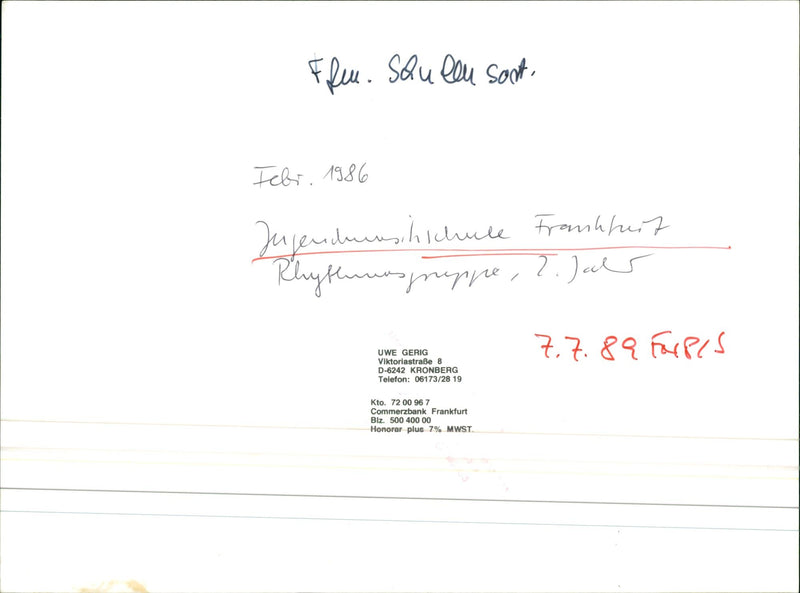 Ffm. Schulen sort.
Febr. 1986
Jugendmusikschule Frankfurt
Rhythmusgruppe, 2. Jahr
7.7.89
UWE GERIG
Viktoriastraße 8
D-6242 KRONBERG
Telefon: 06173/28 19
Kto. 72 00 96 7
Commerzbank Frankfurt
Blz. 500 400 00
Honorar plus 7% MWST.